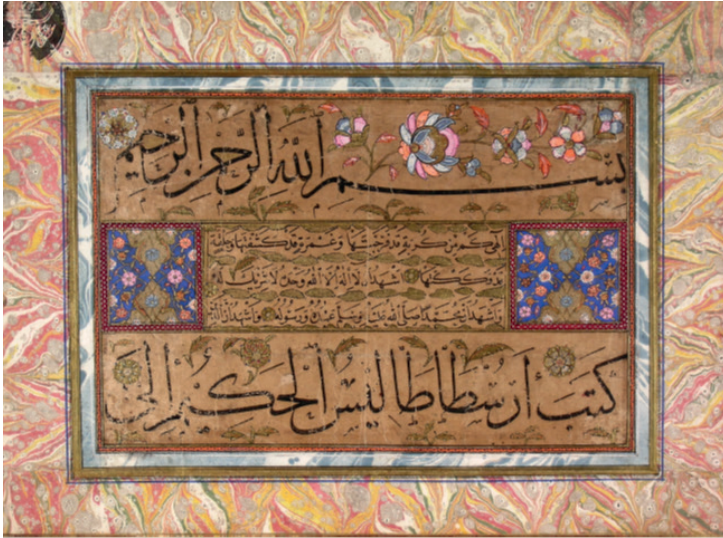 بسم الله الرحمن الرحيم
الهي كم من كربة قد فرجتها وغمرة قد كشفتها
اشهد ان لا اله الا الله وحده لا شريك له
واشهد ان محمدا صلى الله علينا وسلم عبده ورسوله واشهد ان
كتب أرسطاطاليس الحكيم إلى